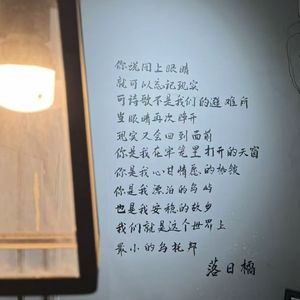 你说闭上眼睛
就可以忘记现实
可诗歌不是我们的避难所
当眼睛再次睁开
现实又会回到面前
你是我在牢笼里打开的天窗
你是我心甘情愿的枷锁
你是我漂泊的岛屿
也是我安稳的故乡
我们就是这个世界上
最小的乌托邦
落日橘